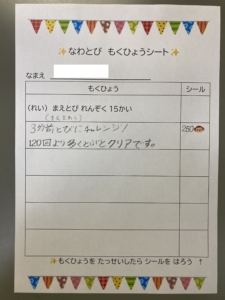 なわとび もくひょうシート
なまえ
もくひょう シール
(れい) まえとび れんぞく 15かい
3分前とびにチャレンジ!
120回より多くとぶとクリアです。
↑もくひょうを たっせいしたら シールを はろう ↑